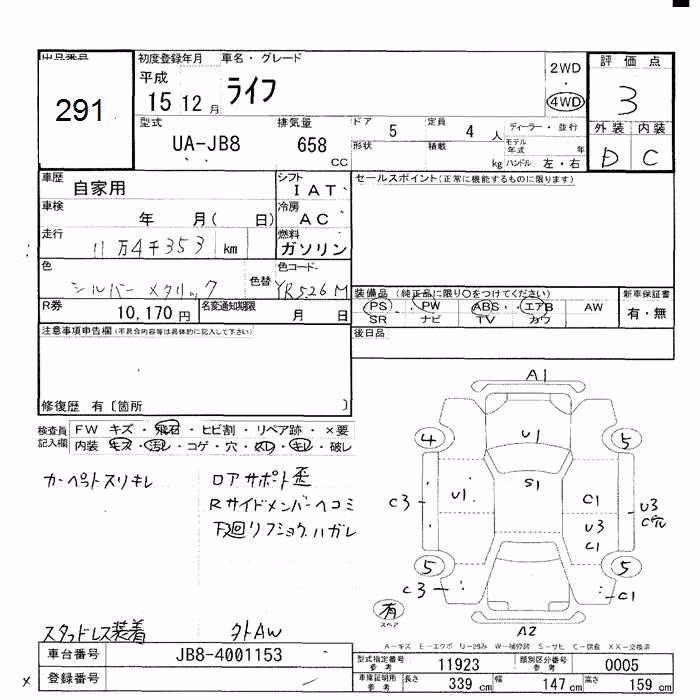 出品番号
291
初度登録年月
平成
15 12 月
車名・グレード
ライフ
2WD
・
4WD
評価点
3
外装 内装
D C
型式
UA-JB8
排気量
658
cc
ドア 5
定員 4 人
ディーラー・並行
形状
積載 kg
モデル年式 年
ハンドル 左・右
車歴
自家用
シフト
I A T
車検
年 月( 日)
冷房
A C
走行
11万4千353 km
燃料
ガソリン
色
シルバー メタリック
色替
色コード
YR526M
R券
10,170 円
名変通知期限
月 日
セールスポイント(正常に機能するものに限ります)
装備品 (純正品に限り○をつけてください)
PS PW ABS エアB AW
SR ナビ TV カワ
新車保証書
有・無
後日品
注意事項申告欄(不具合内容等は具体的に記入して下さい)
修復歴 有〔箇所 〕
検査員
記入欄
FW キズ・飛石・ヒビ割・リペア跡・×要
内装 キズ・汚レ・コゲ・穴・スレ・キレ・破レ
カーペットスリキレ
ロアサポート歪
Rサイドメンバーヘコミ
下廻リフショクハガレ
スタッドレス装着
外AW
A1
4
U1
5
S1
C3
U1
C1
U3
C穴
U3
C1
5
5
C3
C1
有
スペア
A2
A-キズ E-エクボ U-凹み W-補修跡 S-サビ C-腐食 XX-交換済
車台番号
JB8-4001153
登録番号
型式指定番号
参考
11923
類別区分番号
参考
0005
車庫証明用
参考
長さ 339 cm
幅 147 cm
高さ 159 cm